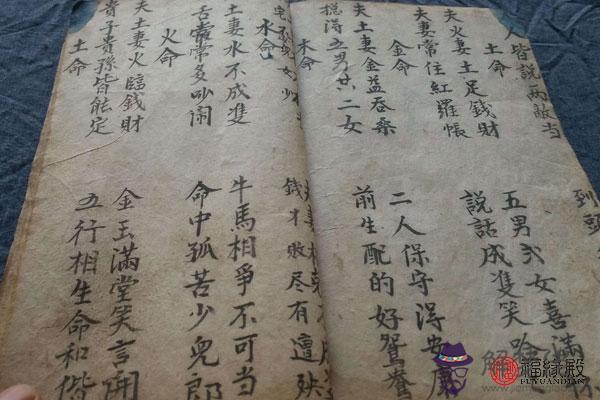 人皆說兩敵当
到頭
土命
夫火妻土足錢財
五男弍女喜滿
夫妻常住紅羅帳
說話成雙笑哈
金命
夫土妻金益吞桑
二人保守得安康
說得五男共二女
前生配的好鴛鴦
木命
夫妻相
兒女少
錢才敗尽有遭殃
水命
土妻水不成雙
牛馬相爭不可当
舌常多吵闹
命中孤苦少兒郎
火命
夫土妻火臨錢財
金玉滿堂笑言開
貴子貴孫皆能定
五行相生命和偕
土命
福緣殿
FUYUANDIAN